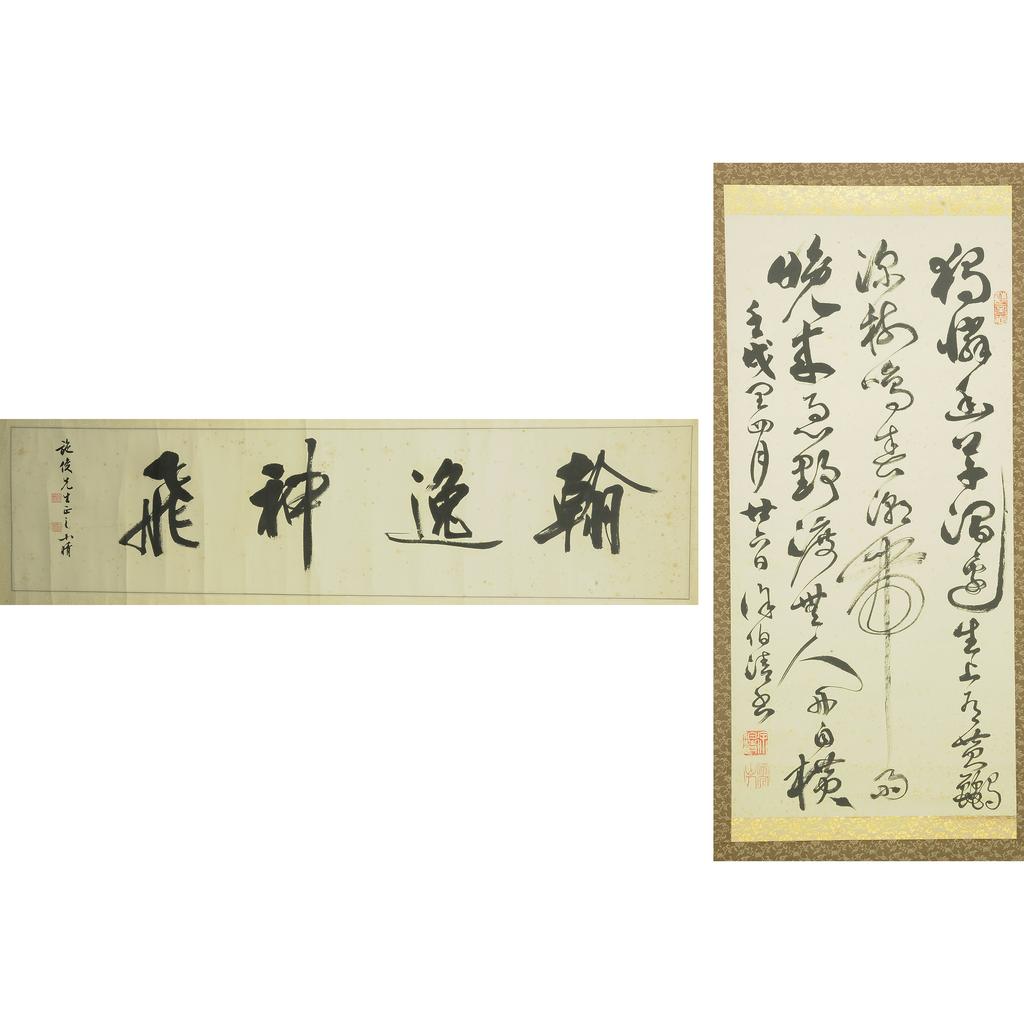 翰逸神飛
施俊先生正之
獨憐幽草澗邊生上有黄鸝
深樹鳴春潮帶雨
晚来急野渡無人舟自横
壬戌閏四月廿六日徐伯清書